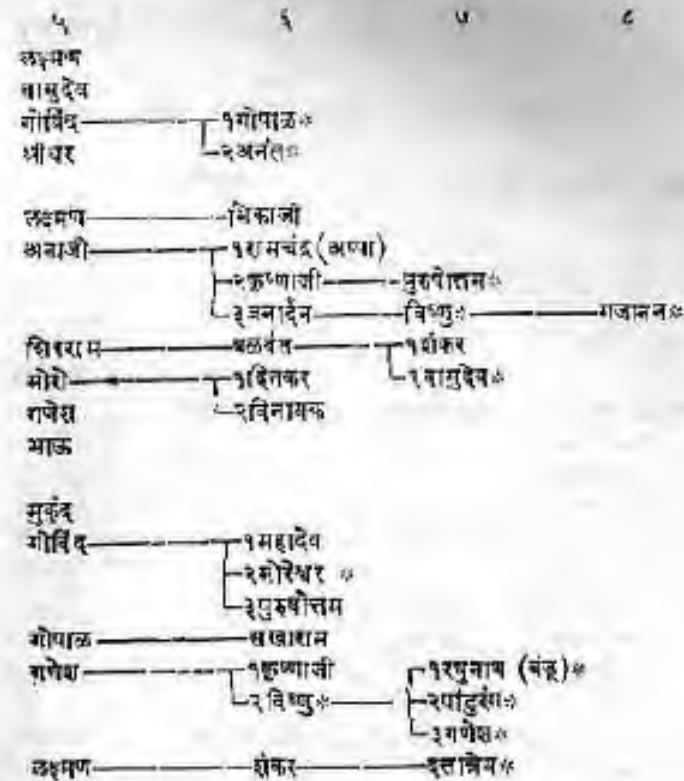 ५ ६ ७ ८
लक्ष्मण
वासुदेव
गोविंद १गोपाळ*
श्रीधर २अनंत*
लक्ष्मण भिकाजी
अबाजी १रामचंद्र(अप्पा)
२कृष्णाजी पुरुषोत्तम*
३जनार्दन विष्णु* गजानन*
शिवराम बळवंत १शंकर
मोरो १दिनकर २वासुदेव*
गणेश २विनायक
भाऊ
मुकुंद
गोविंद १महादेव
२मोरेश्वर *
३पुरुषोत्तम
गोपाळ सखाराम
गणेश १कृष्णाजी १रघुनाथ (बंडू)*
२विष्णु* २पांडुरंग*
३गणेश*
लक्ष्मण शंकर दत्तात्रेय*